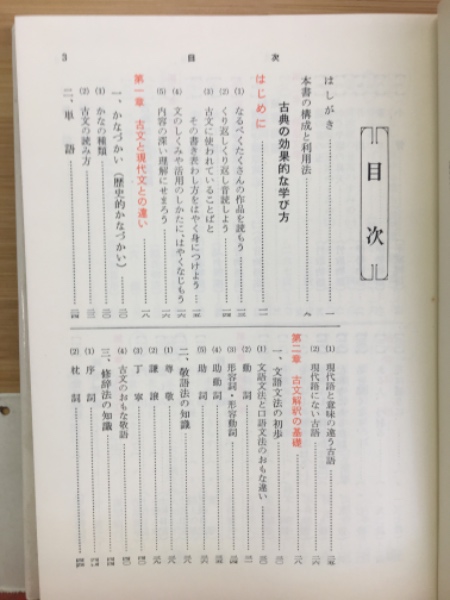 目次
はしがき……一
本書の構成と利用法……八
はじめに……一一
古典の効果的な学び方
(1) なるべくたくさんの作品を読もう……一一
(2) くり返しくり返し音読しよう……一四
(3) 古文に使われていることばと
その書き表わし方をはやく身につけよう……一五
(4) 文のしくみや活用のしかたに、はやくなじもう……一六
(5) 内容の深い理解にせまろう……一六
第一章 古文と現代文との違い……一八
一、かなづかい(歴史的かなづかい)……二〇
(1) かなの種類……二〇
(2) 古文の読み方……二二
二、単語……二四
(1) 現代語と意味の違う古語
(2) 現代語にない古語……二六
第二章 古文解釈の基礎……二八
一、文語文法の初歩……三〇
(1) 文語文法と口語文法のおもな違い……三〇
(2) 動詞……三一
(3) 形容詞・形容動詞
(4) 助動詞
(5) 助詞
二、敬語法の知識
(1) 尊敬
(2) 謙譲
(3) 丁寧……四〇
(4) 古文のおもな敬語
三、修辞法の知識
(1) 序詞
(2) 枕詞
目次
3